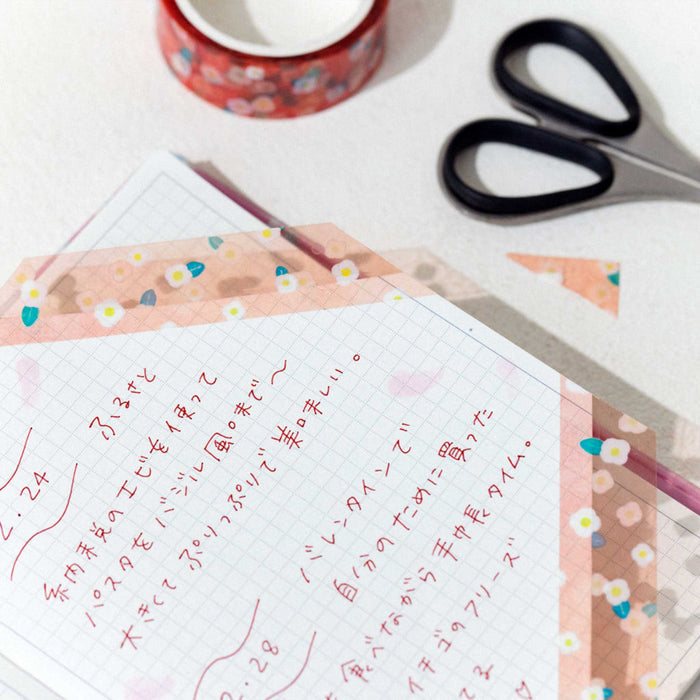 2.24
ふるさと
納税のエビを使って
パスタをバジル風味で〜
大きくてぷりっぷりで美味しい。
2.28
バレンタインで
自分のために買った
食べながら手帳タイム。
イチゴのフリーズ
てる♡